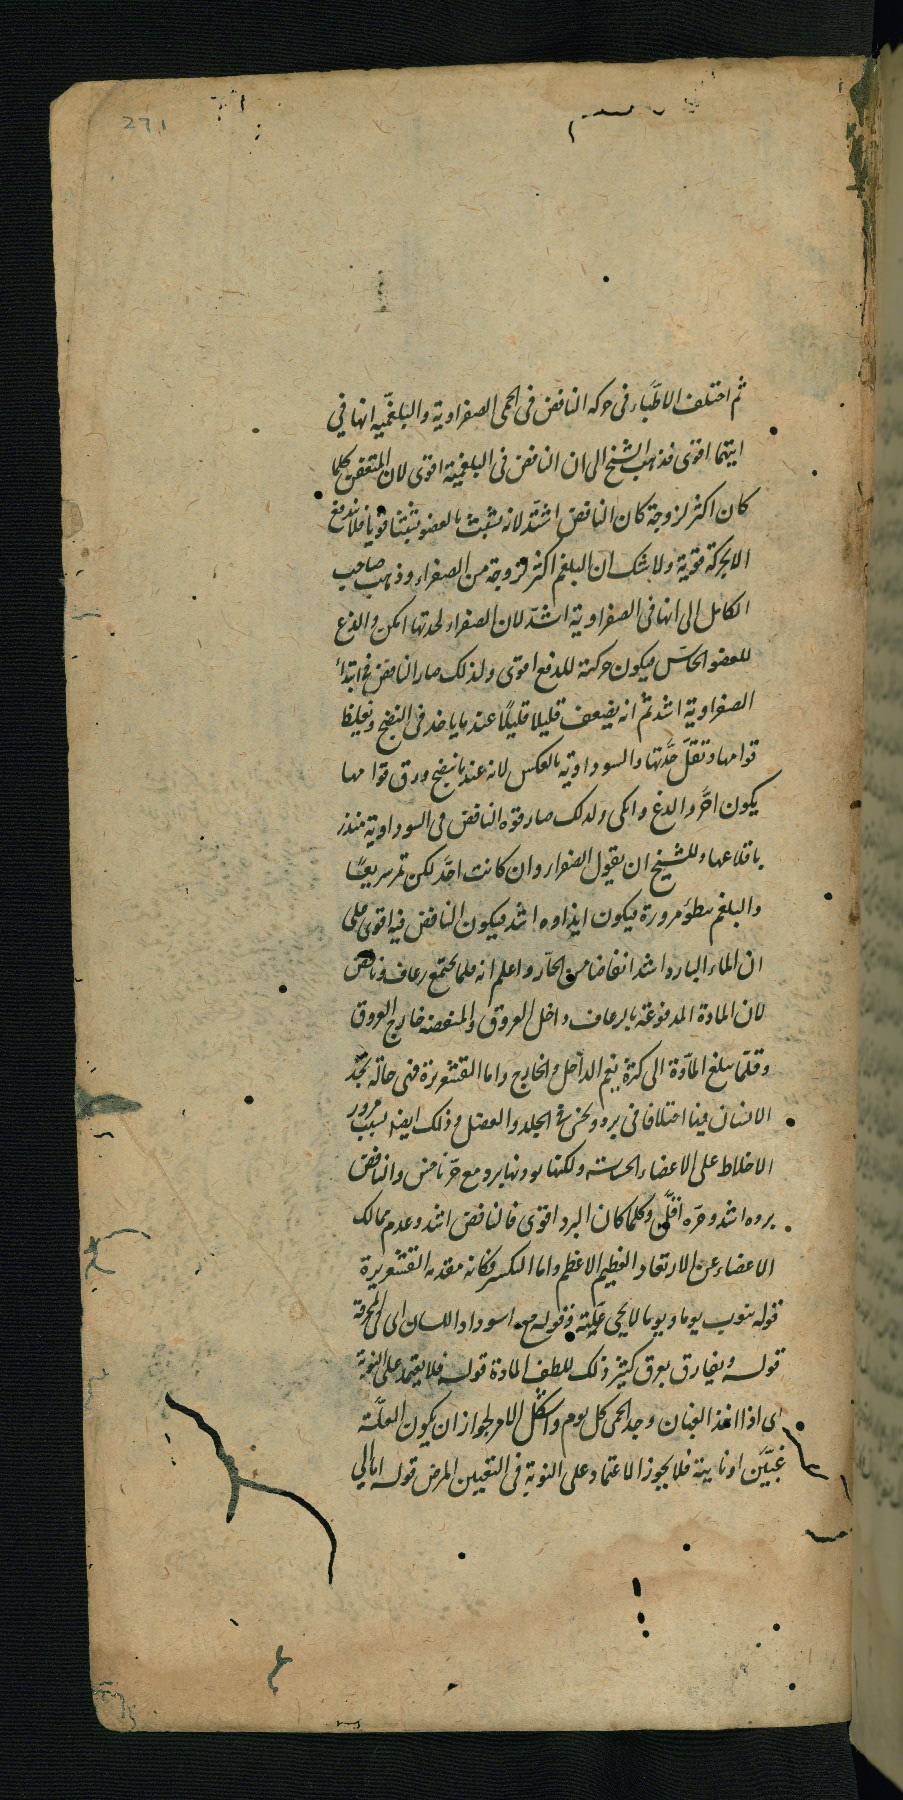 271
ثم اختلف الاطباء فى حركة النافض فى الحمى الصفراوية والبلغمية انها في
ايتهما اقوى فذهب الشيخ الى ان النافض فى البلغمية اقوى لان المتعفن كلما
كان اكثر لزوجة كان النافض اشد لانه يتشبث بالعضو تشبثا قويا فلا يندفع
الا بحركة قوية ولا شك ان البلغم اكثر لزوجة من الصفراء وذهب صاحب
الكامل الى انها فى الصفراوية اشد لان الصفراء لحدتها انكى والذع
للعضو الحاس فيكون حركته للدفع اقوى ولذلك صار النافض فى ابتداء
الصفراوية اشد ثم انه يضعف قليلا قليلا عند ما ياخذ فى النضج ويغلظ
قوامها وتقل حدتها والسوداوية بالعكس لانه عند ما ينضج ورق قوامها
يكون احد والذغ وانكى ولذلك صار قوة النافض فى السوداوية منذر
باقلاعها وللشيخ ان يقول الصفراء وان كانت احد لكن تمر سريعا
والبلغم بطؤ مروره فيكون ايذاوه اشد فيكون النافض فيه اقوى على
ان الماء البارد اشد انفاضا من الحار واعلم انه قلما يجتمع رعاف ونافض
لان المادة المدفوعة بالرعاف داخل العروق والمنفضة خارج العروق
وقلما يبلغ المادة الى كثرة يعم الداخل والخارج واما القشعريرة فهى حالة يجد
الانسان فيها اختلافا فى برد ونخس فى الجلد والعضل وذلك ايضا بسبب مرور
الاخلاط على الاعضاء الحساسة ولكنها بورقها برد مع حر ناخس والنافض
برده اشد وحره اقل وكلما كان البرد اقوى فالنافض اشد وعدم تمالك
الاعضاء عن الارتعاد العظيم الاعظم واما التكسر فكانه مقدمه القشعريرة
قوله ينوب يوما ويوما لا يحى عليته وقوله من اسوداد اللسان اى فى المحرقة
قوله ويفارق بعرق كثير ذلك للطف المادة قوله فلا يعتمد على النوبة
اى اذا اخذ الغبان وجد الحمى كل يوم واشكل الامر لجواز ان يكون العلة
غبين او نايبة فلا يجوز الاعتماد على النوبة فى التعيين المرض قوله امالي